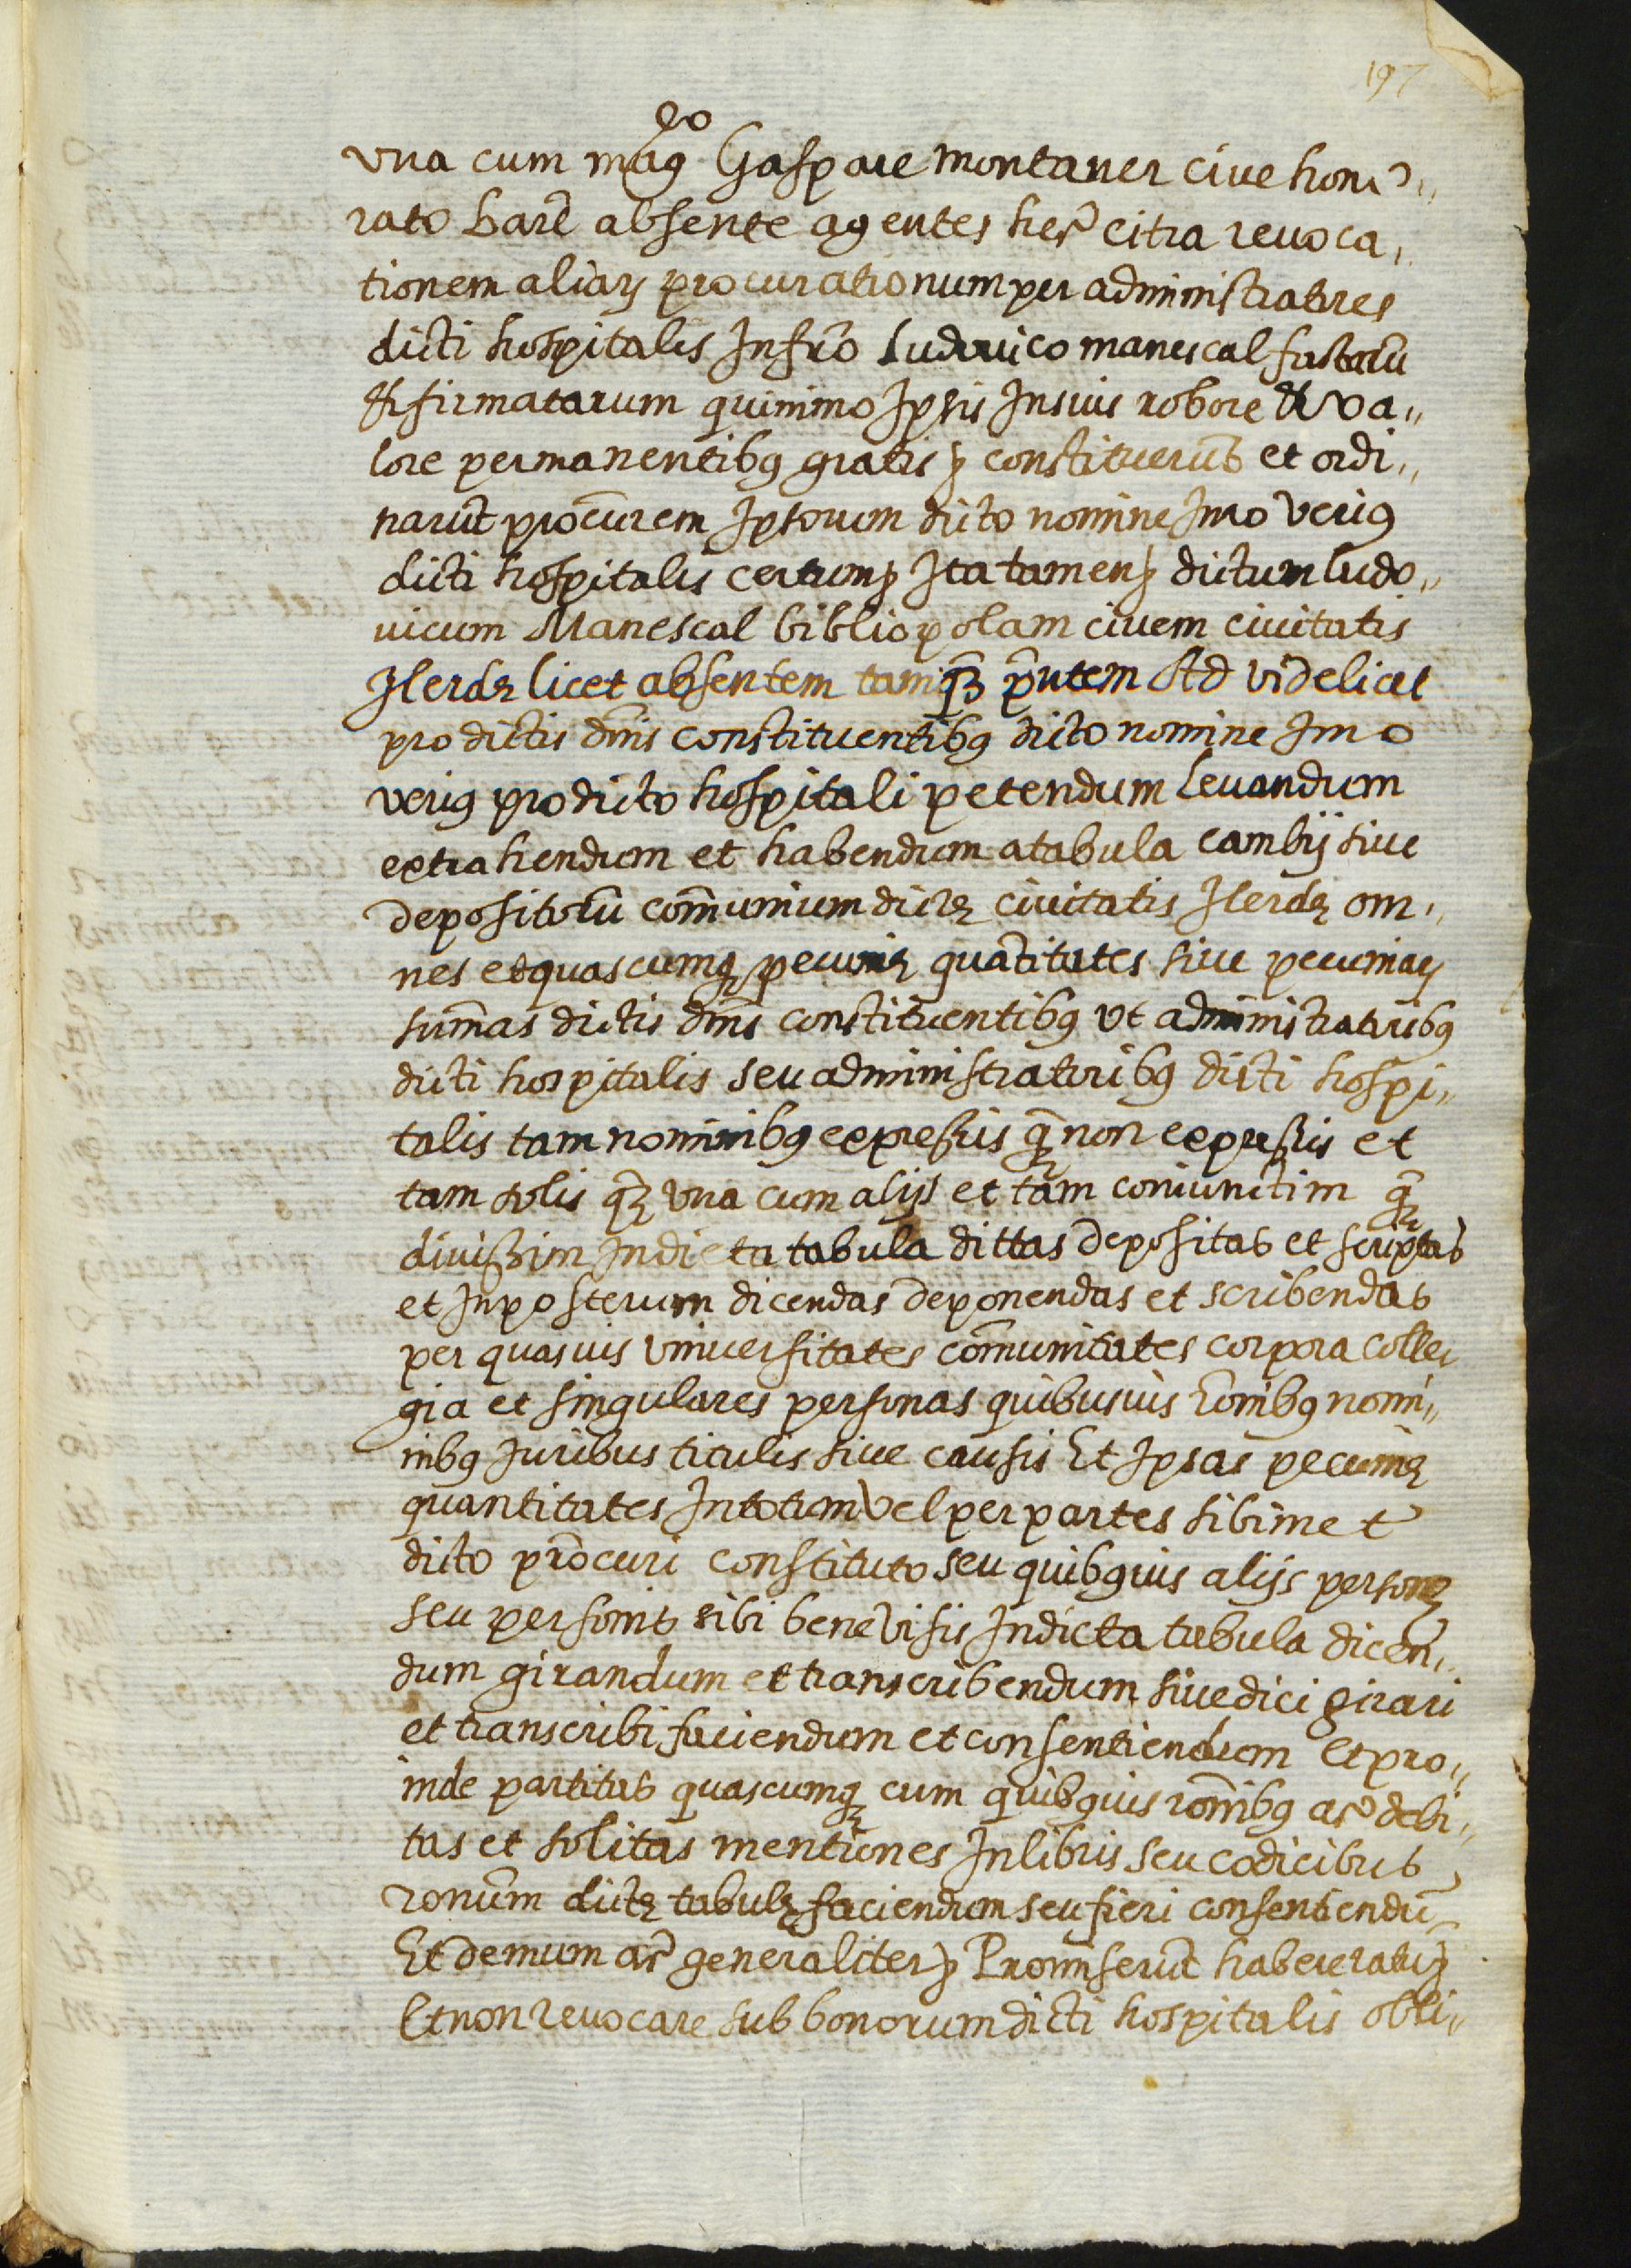 197
vna cum mag.co Gaspare montaner ciue hono,,
rato Barñ absente agentes her̃ citra reuoca,,
tionem aliaꝝ procurationum per administratores
dicti hospitalis Infrõ Ludouico manescal factarũ
et firmatarum quinimo Ipsis Insuis robore et va,,
lore permanentibꝰ gratis ꝫ constituerũt et ordi,,
narũt procũrem Ipsorum dicto nomine Imo veriꝰ
dicti hospitalis certum ꝫ Ita tamen ꝫ dictum ludo,,
uicum Manescal bibliopolam ciuem ciuitatis
Ilerdę licet absentem tamq̃ꝫ pñtem Ad videlicet
pro dictis dñis constituentibꝰ dicto nomine Imo
veriꝰ pro dicto hospitali petendum leuandum
extrahendum et habendum atabula cambij siue
depositorũ com̃unium dictę ciuitatis Ilerdę om,,
nes et quascumqꝫ pecunię quãtitates siue pecuniaꝝ
sum̃as dictis dñis constituentibꝰ vt administratoribꝰ
dicti hospitalis seu administratoribꝰ dicti hospi,,
talis tam nominibꝰ expressis q̃ꝫ non expressis et
tam solis q̃ꝫ vna cum alijs et tam coniunctim q̃ꝫ
diuissim Indicta tabula dictas depositas et scriptas
et Inposterum dicendas deponendas et scribendas
per quasuis vniuersitates com̃unitates corpora colle,,
gia et singulares personas quibusuis rõnibꝰ nomi,,
nibꝰ Juribus titulis siue causis Et Ipsas pecunię
quantitates Intotum vel per partes sibimet
dicto procũri constituto seu quibꝰuis alijs personę
seu personis sibi bene visis Indicta tabula dicen,,
dum girandum et transcribendum siue dici girari
et transcribi faciendum et consentiendum Et pro,,
inde partitas quascumqꝫ cum quibꝰuis rõnibꝰ ac̃ debi,,
tas et solitas mentiones Inlibris seu codicibus
ronũm dictę tabulę faciendum seu fieri consentiendũ
Et demum ac̃ generaliter ꝫ Promiserũt habere ratũ ꝫ
Et non reuocare sub bonorum dicti hospitalis obli,,